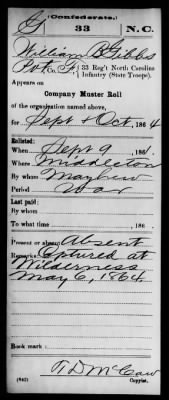 G (Confederate.)
33 N.C.
William B Gibbs
Pvt, Co. F, 33 Reg't North Carolina
Infantry (State Troops).
Appears on
Company Muster Roll
of the organization named above,
for Sept & Oct, 1864
Enlisted:
When Sept 9, 1861.
Where Middleton
By whom Mayhew
Period War
Last paid:
By whom
To what time , 186 .
Present or absent Absent
Remarks: Captured at
Wilderness
May 6, 1864.
Book mark:
T. D. McCaw
(642) Copyist.